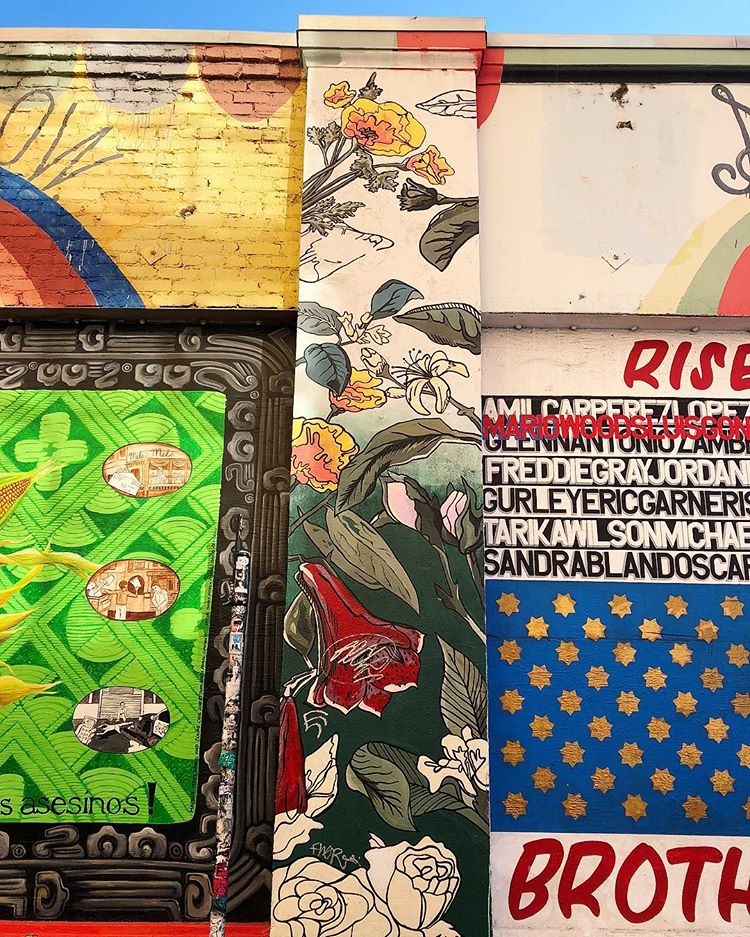 OW
2002
s asesinos!
RISE
AMILCARPEREZLOPEZ
MARIOWOODSLUISGON
GLENNANTONIOZAMB
FREDDIEGRAYJORDAN
GURLEYERICGARNERIS
TARIKAWILSONMICHAE
SANDRABLANDOSCAR
BROTH